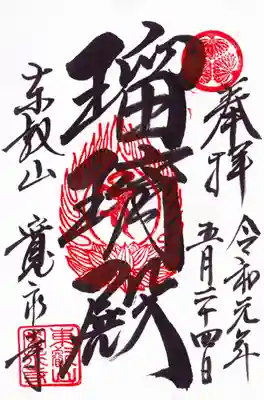 奉拝
令和元年
五月二十四日
瑠璃殿
東叡山
寛永寺